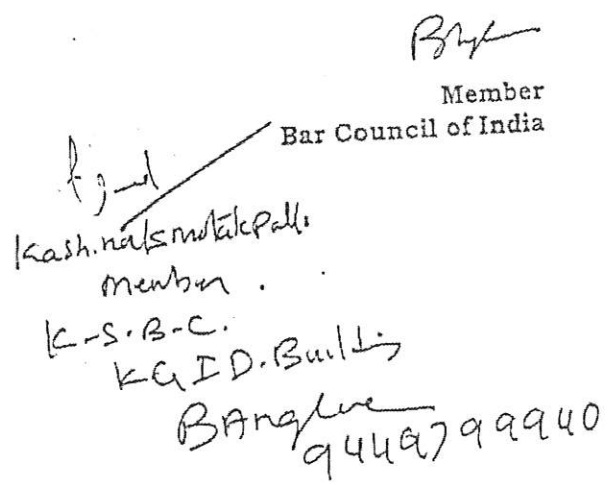 Member
Bar Council of India
Kash.nath motakpalli
Member.
K-S.B-C.
KGID.Building
BAnglore
9449799940